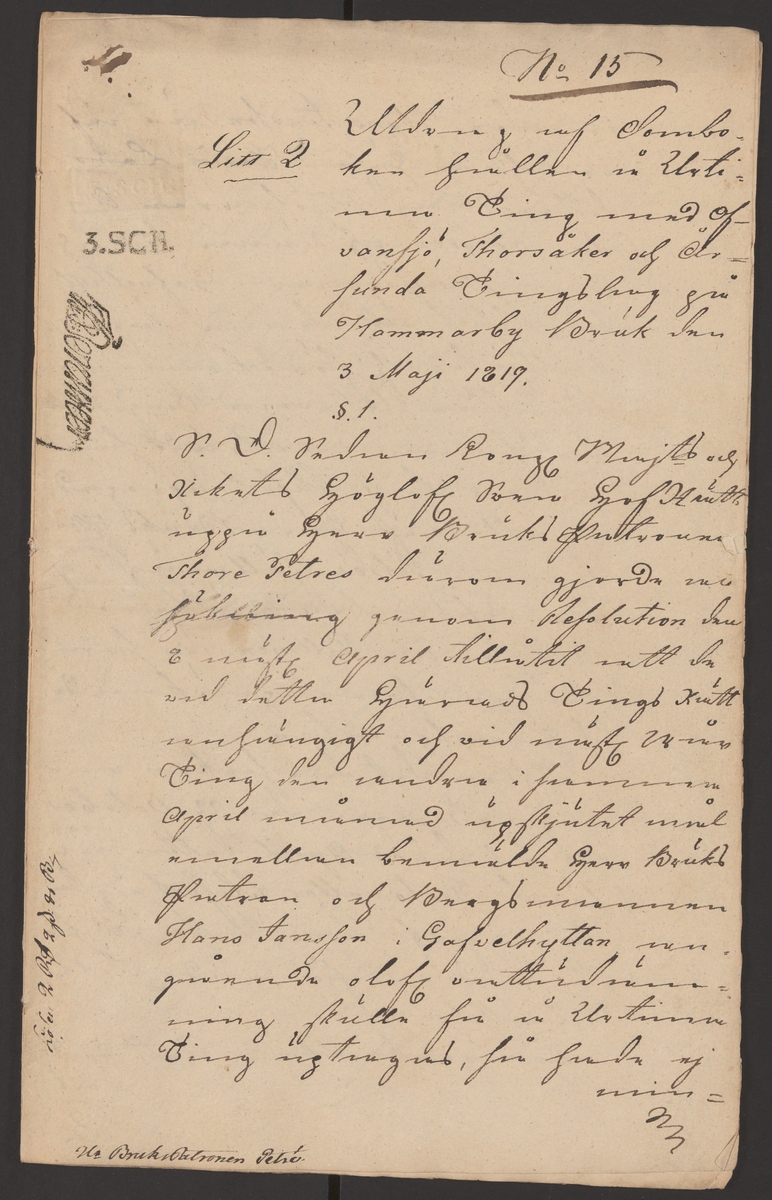 No 15
Litt 2
Utdrag af Dombo-
ken hållen å Urti-
ma Ting med Of-
vansjö, Thorsåker och År-
sunda Tingslag på
Hammarby Bruk den
3 Maji 1819.
3.SCH.
§. 1.
S. D. Sedan Kongl Majts och
Rikets Höglofl Svea Hof Rätt
uppå Herr Bruks Patronen
Thore Petres därom gjorde an
sökning genom Resolution den
2 nästl April tillåtit att de
vid detta Härads Tings Rätt
anhängigt och vid nästl Wår
Ting den andra i samma
April månad upskjutet mål
emellan bemälde Herr Bruks
Patron och Bergsmannen
Hans Jansson i Gafvelhyttan an-
gående olofl uttädäm-
ning skulle få å Urtima
Ting uptagas, så hade ej
min=
Hr Bruks Patronen Petré.